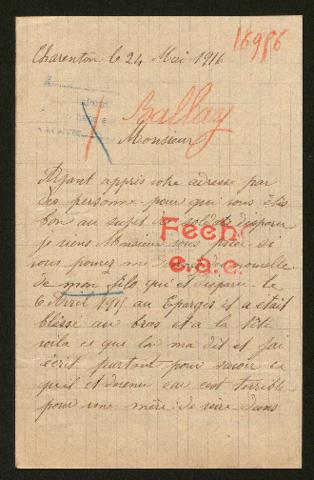 16986
Charenton le 24 Mai 1916
Ballay
Monsieur
Ayant appris votre adresse par
des personne pour qui vous êtes
bon au sujet de soldats disparu
je viens Monsieur vous prier de
vous pouvez me nouvelle
Fech.
e.a.c.
de mon fils qui est disparu le
6 Avril 1915 au Eparges il a était
blessé au bras et a la tête
voila ce que l'on ma dit et j'ai
écrit partout pour savoir ce
qu'il et devenu car cest terrible
pour une mère de vivre dans